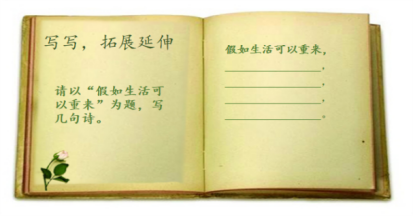 写写，拓展延伸
请以“假如生活可
以重来”为题，写
几句诗。
假如生活可以重来，
＿＿＿＿＿＿＿＿，
＿＿＿＿＿＿＿＿，
＿＿＿＿＿＿＿＿，
＿＿＿＿＿＿＿＿。